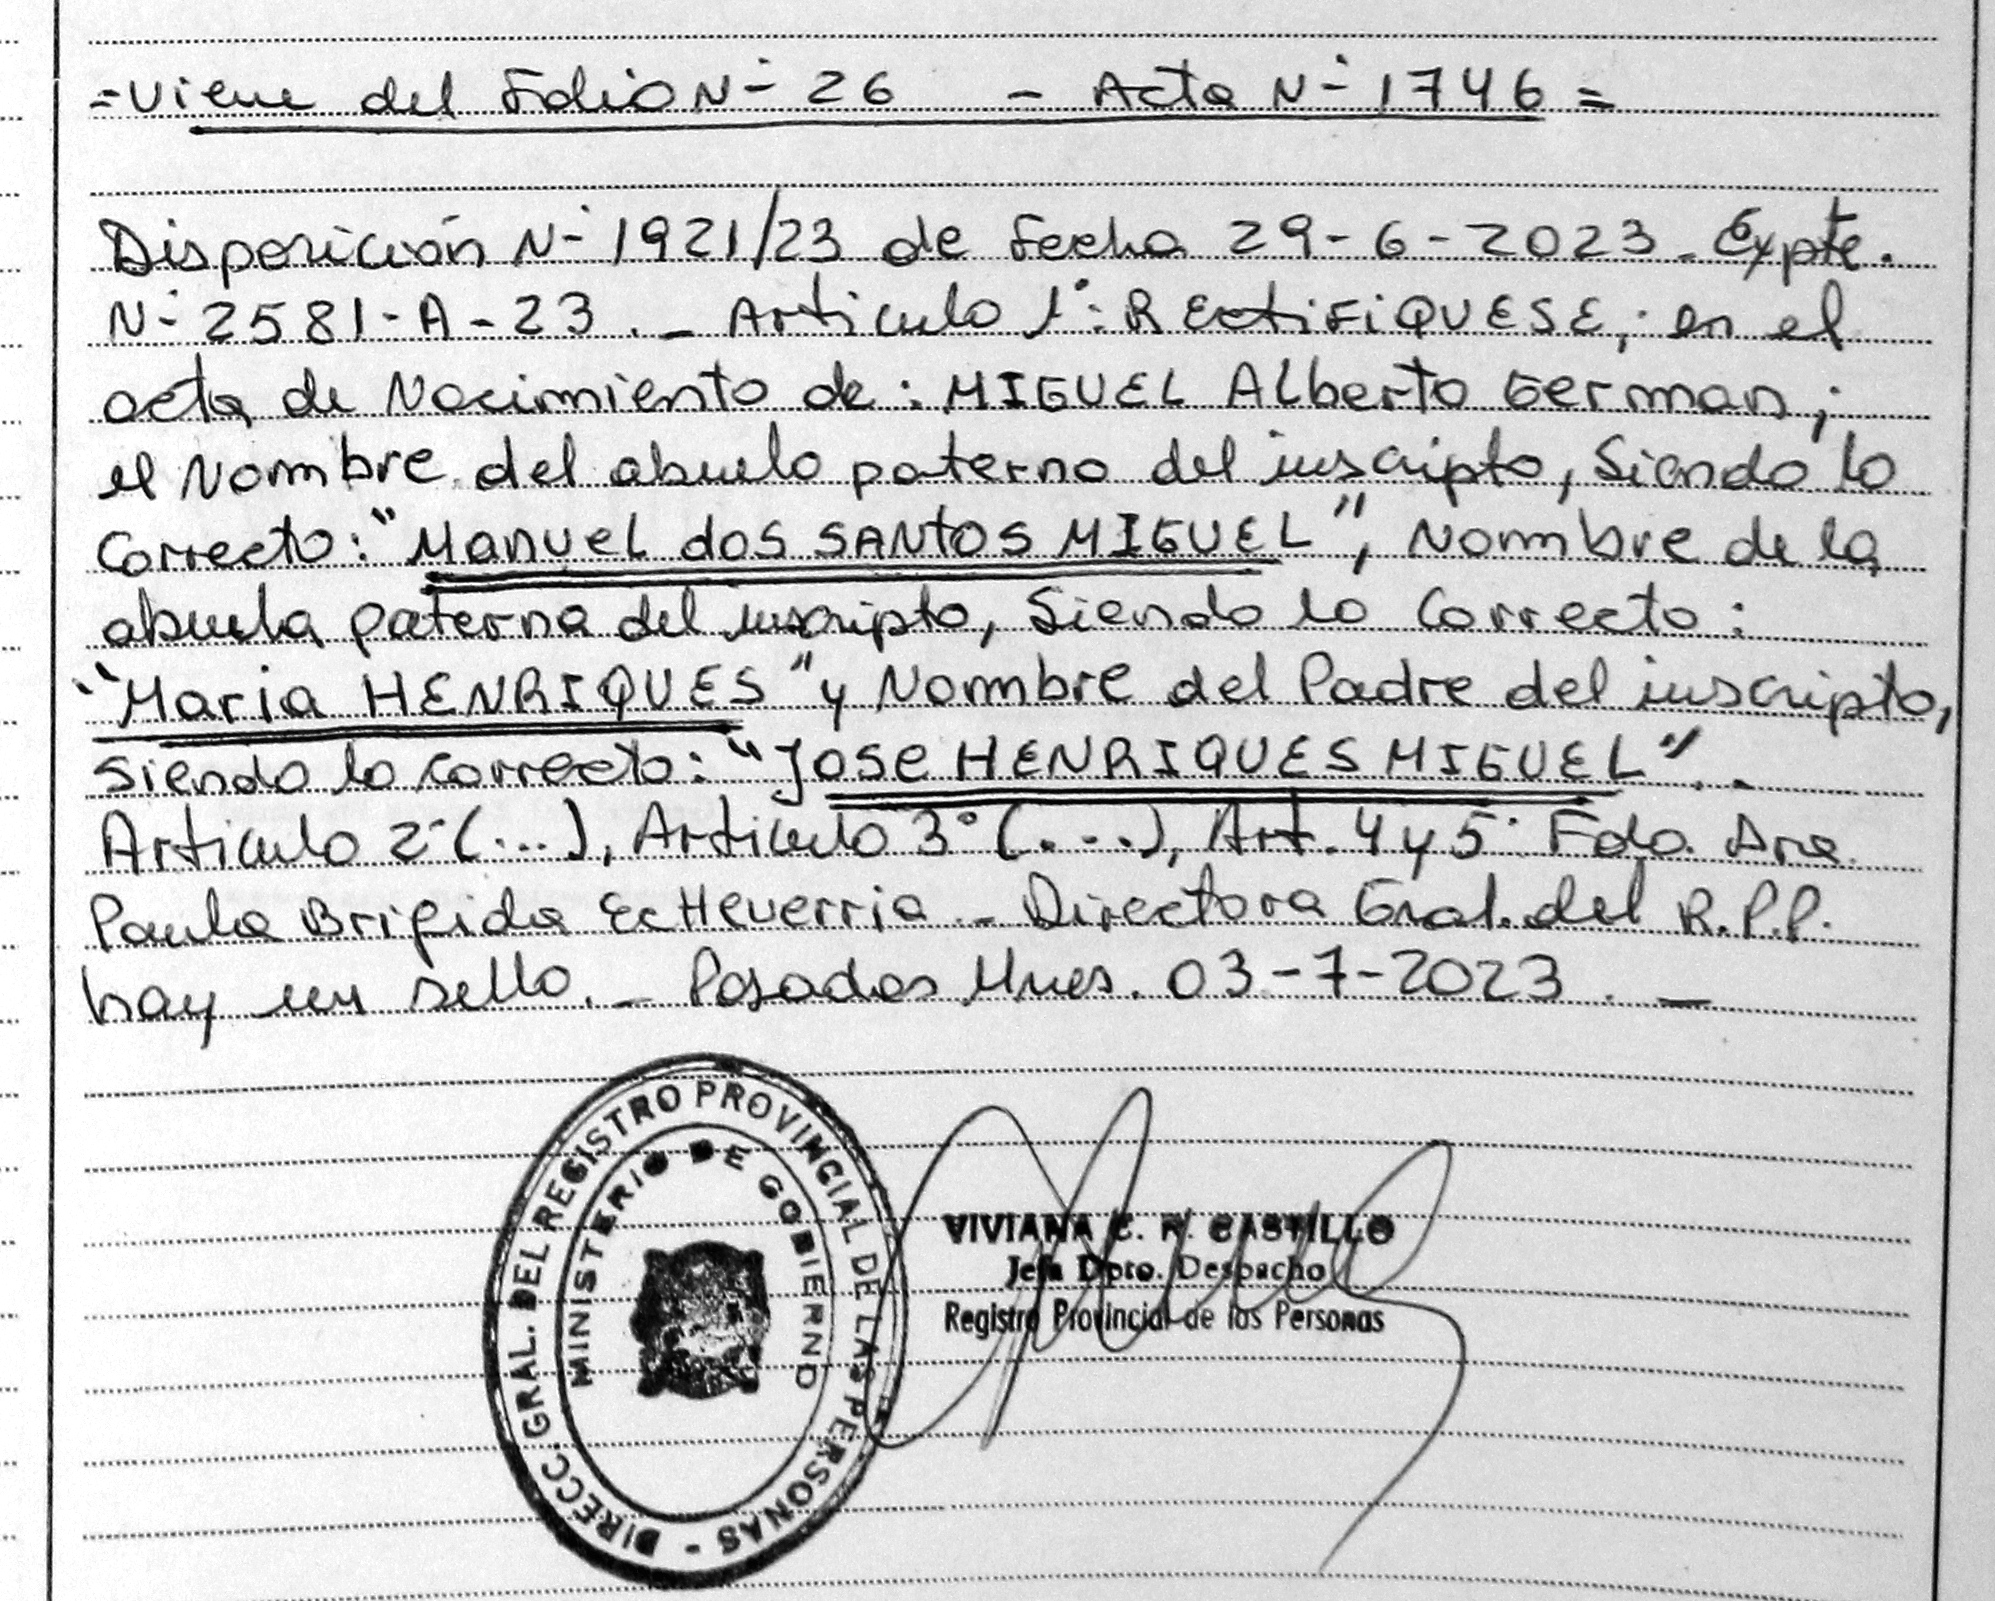 =Viene del Folio Nº 26 - Acta Nº 1746=
Disposición Nº 1921/23 de Fecha 29-6-2023. Expte.
Nº 2581-A-23._ Articulo 1º: RECtiFiQUESE; en el
acta de Nacimiento de: MIGUEL Alberto German;
el Nombre del abuelo paterno del inscripto, Siendo lo
Correcto: "Manuel dos SANtos MIGUEL", Nombre de la
abuela paterna del inscripto, Siendo lo Correcto:
"Maria HENRIQUES" y Nombre del Padre del inscripto,
siendo lo correcto: "Jose HENRIQUES MIGUEL".
Articulo 2º (...), Articulo 3º (...), Art. 4 y 5º Fdo. Dra.
Paula Brigida EcHeverria - Directora Gral. del R.P.P.
hay un sello._ Posadas Mnes. 03-7-2023._
DIRECC. GRAL. DEL REGISTRO PROVINCIAL DE LAS PERSONAS -
MINISTERIO DE GOBIERNO
VIVIANA C. R. CASTILLO
Jefa Dpto. Despacho
Registro Provincial de las Personas